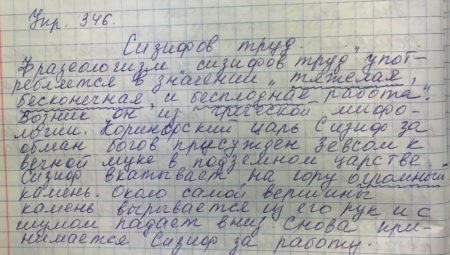 Упр. 346.
Сизифов труд.
Фразеологизм „сизифов труд" упот-
ребляется в значении „тяжелая,
бесконечная и бесплодная работа".
Возник он из греческой мифо-
логии. Коринфский царь Сизиф за
обман богов присужден Зевсом к
вечной муке в подземном царстве
Сизиф вкатывает на гору огромный
камень. Около самой вершины
камень вырывается из его рук и с
шумом падает вниз. Снова при-
нимается Сизиф за работу.